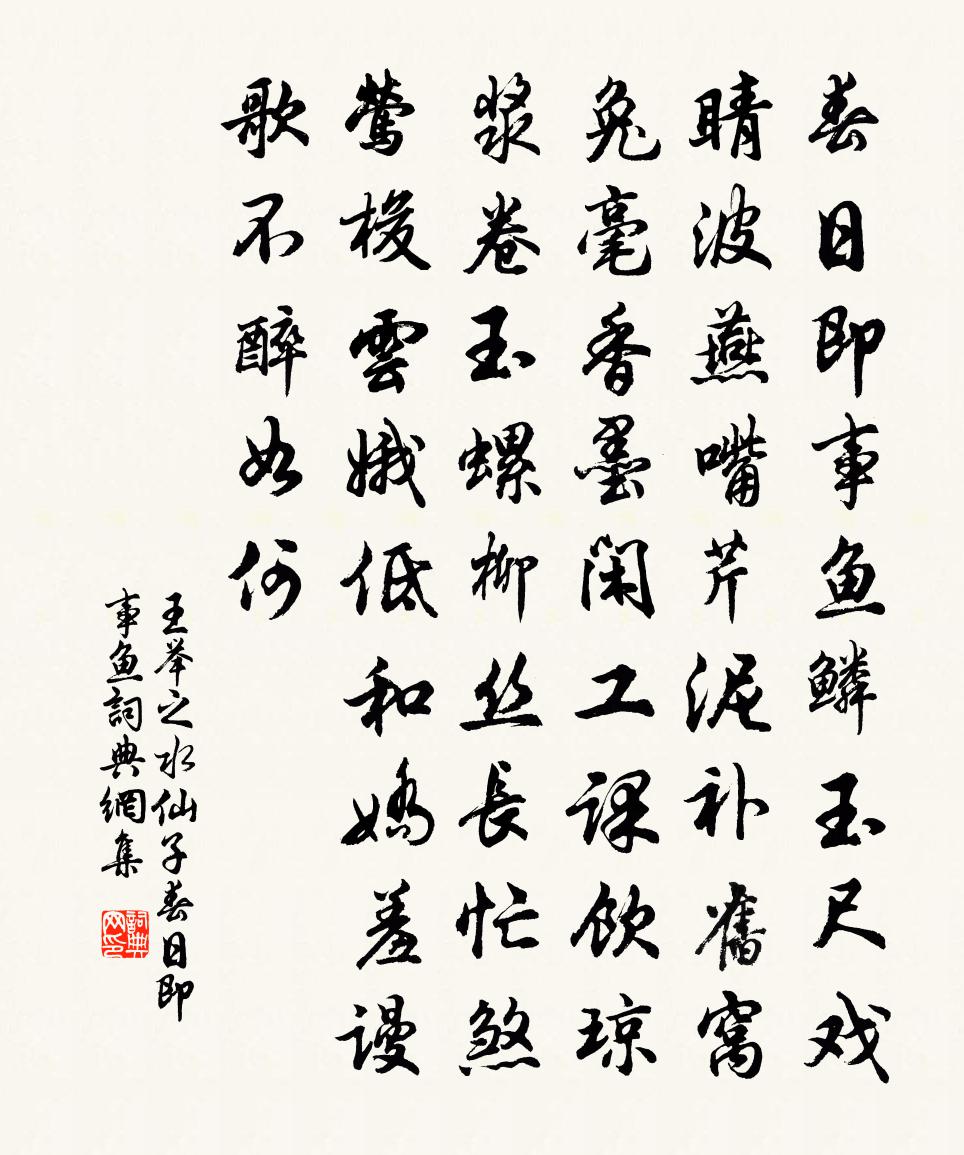 春日即事鱼鳞玉尺戏
晴波燕嘴芹泥补舊窝
兔毫香墨闲工课饮琼
浆卷玉螺柳丝長忙煞
莺梭雲娥低和嬌羞谩
歌不醉如何
王举之水仙子春日即
事鱼詞典網集
詞典网印